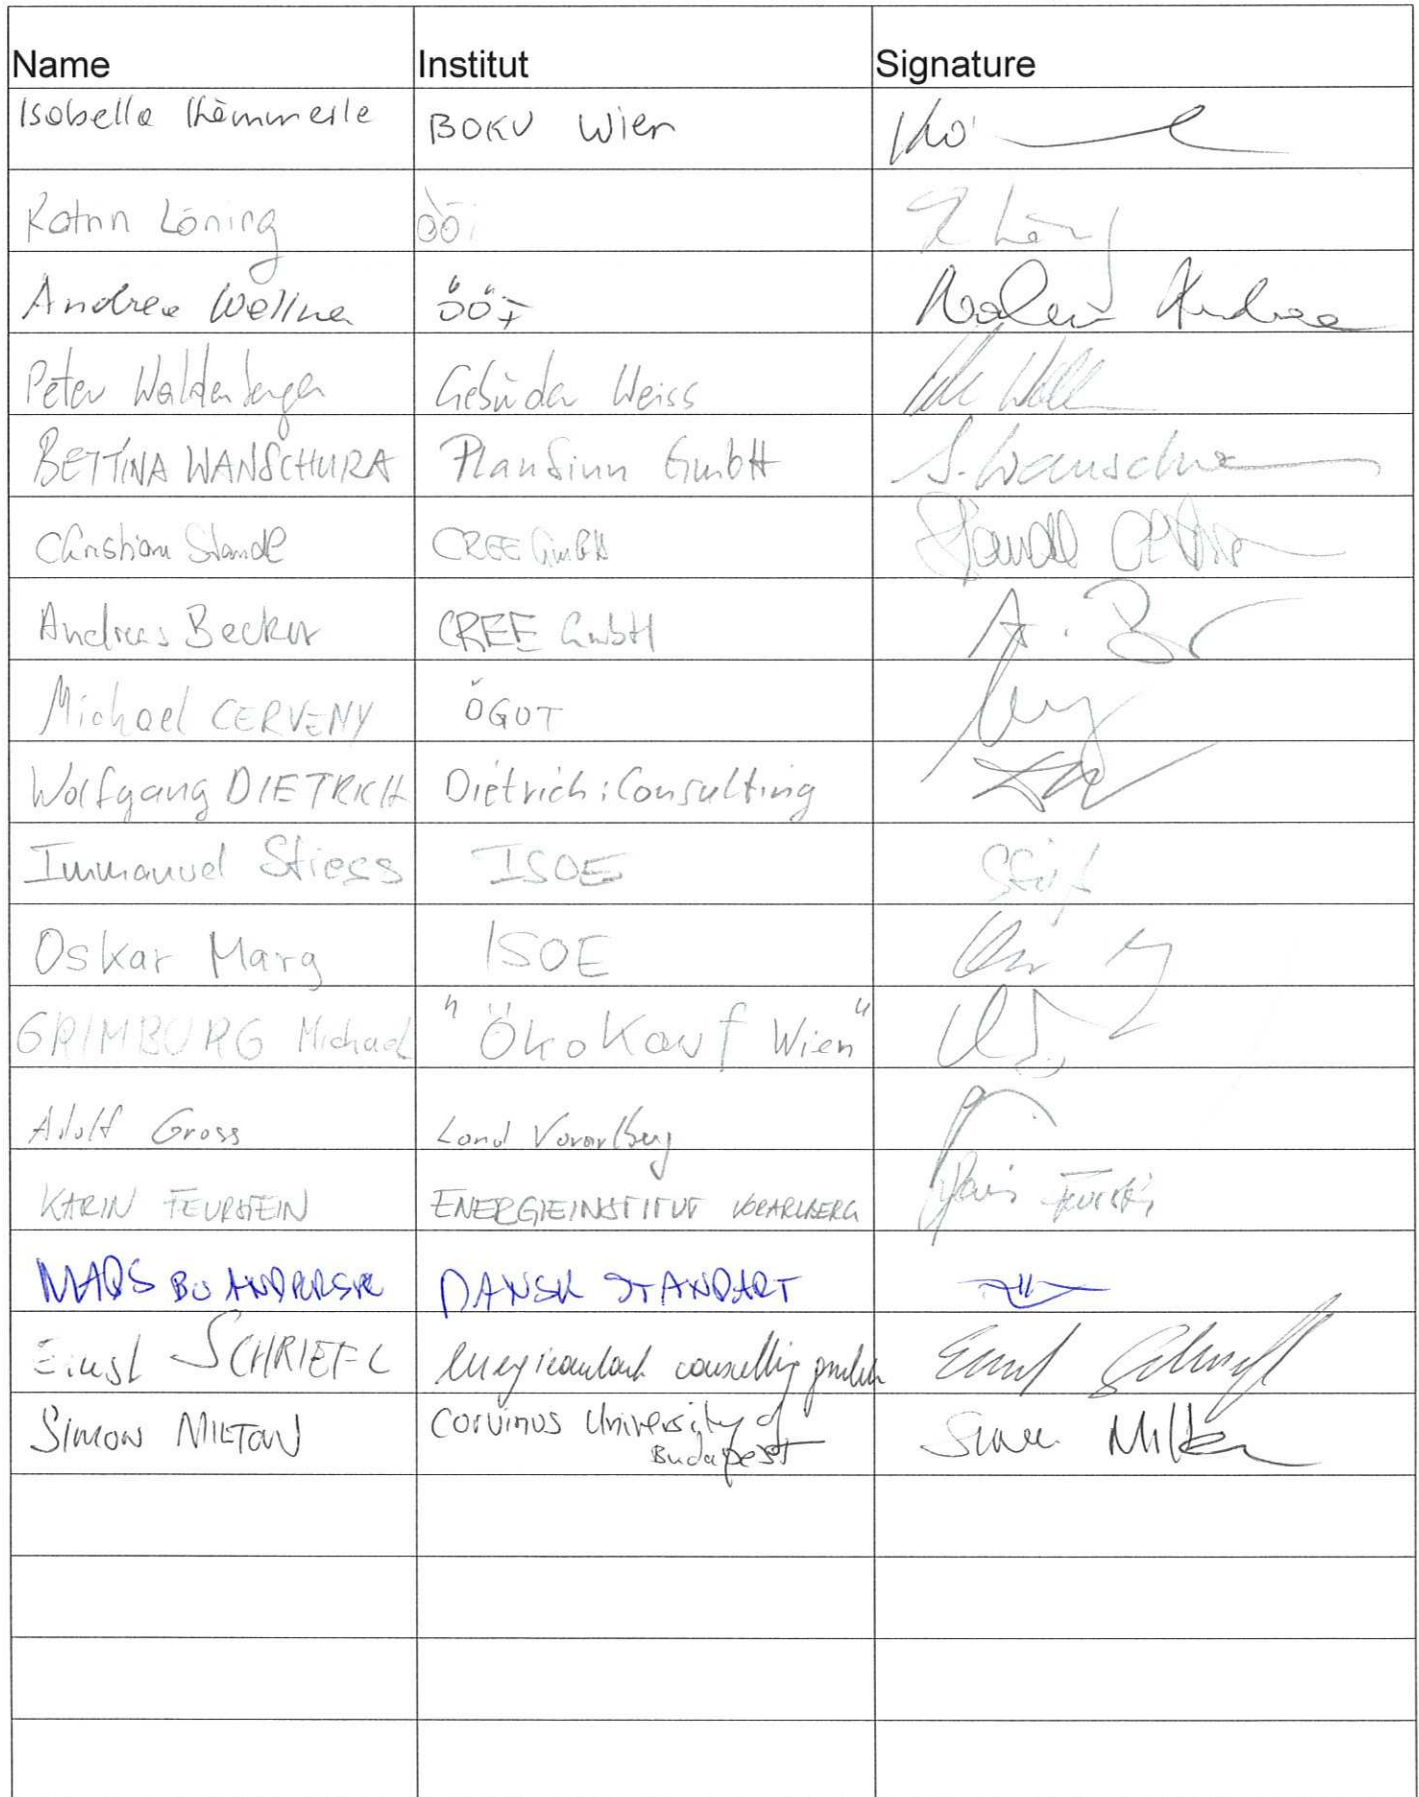 Name Institut Signature
Isabella Kömmerle BOKU Wien Kö
Katrin Löning ÖÖI
Andrea Wellner ÖÖI Andrea
Peter Waldenberger Gebrüder Weiss
BETTINA WANSCHURA PlanSinn GmbH B. Wanschura
Christian Standl CREE GmbH
Andreas Becker CREE GmbH A. B
Michael CERVENY ÖGUT
Wolfgang DIETRICH Dietrich:Consulting
Immanuel Stiess ISOE Stieß
Oskar Marg ISOE
GRIMBURG Michael "Ökokauf Wien"
Adolf Gross Land Vorarlberg
KARIN FEURSTEIN ENERGIEINSTITUT VORARLBERG
MADS BO ANDERSEN DANSK STANDART
Ernst SCHRIEFL consulting gmbh Ernst Schriefl
SIMON MILTON Corvinus University of
Budapest Simon Milton